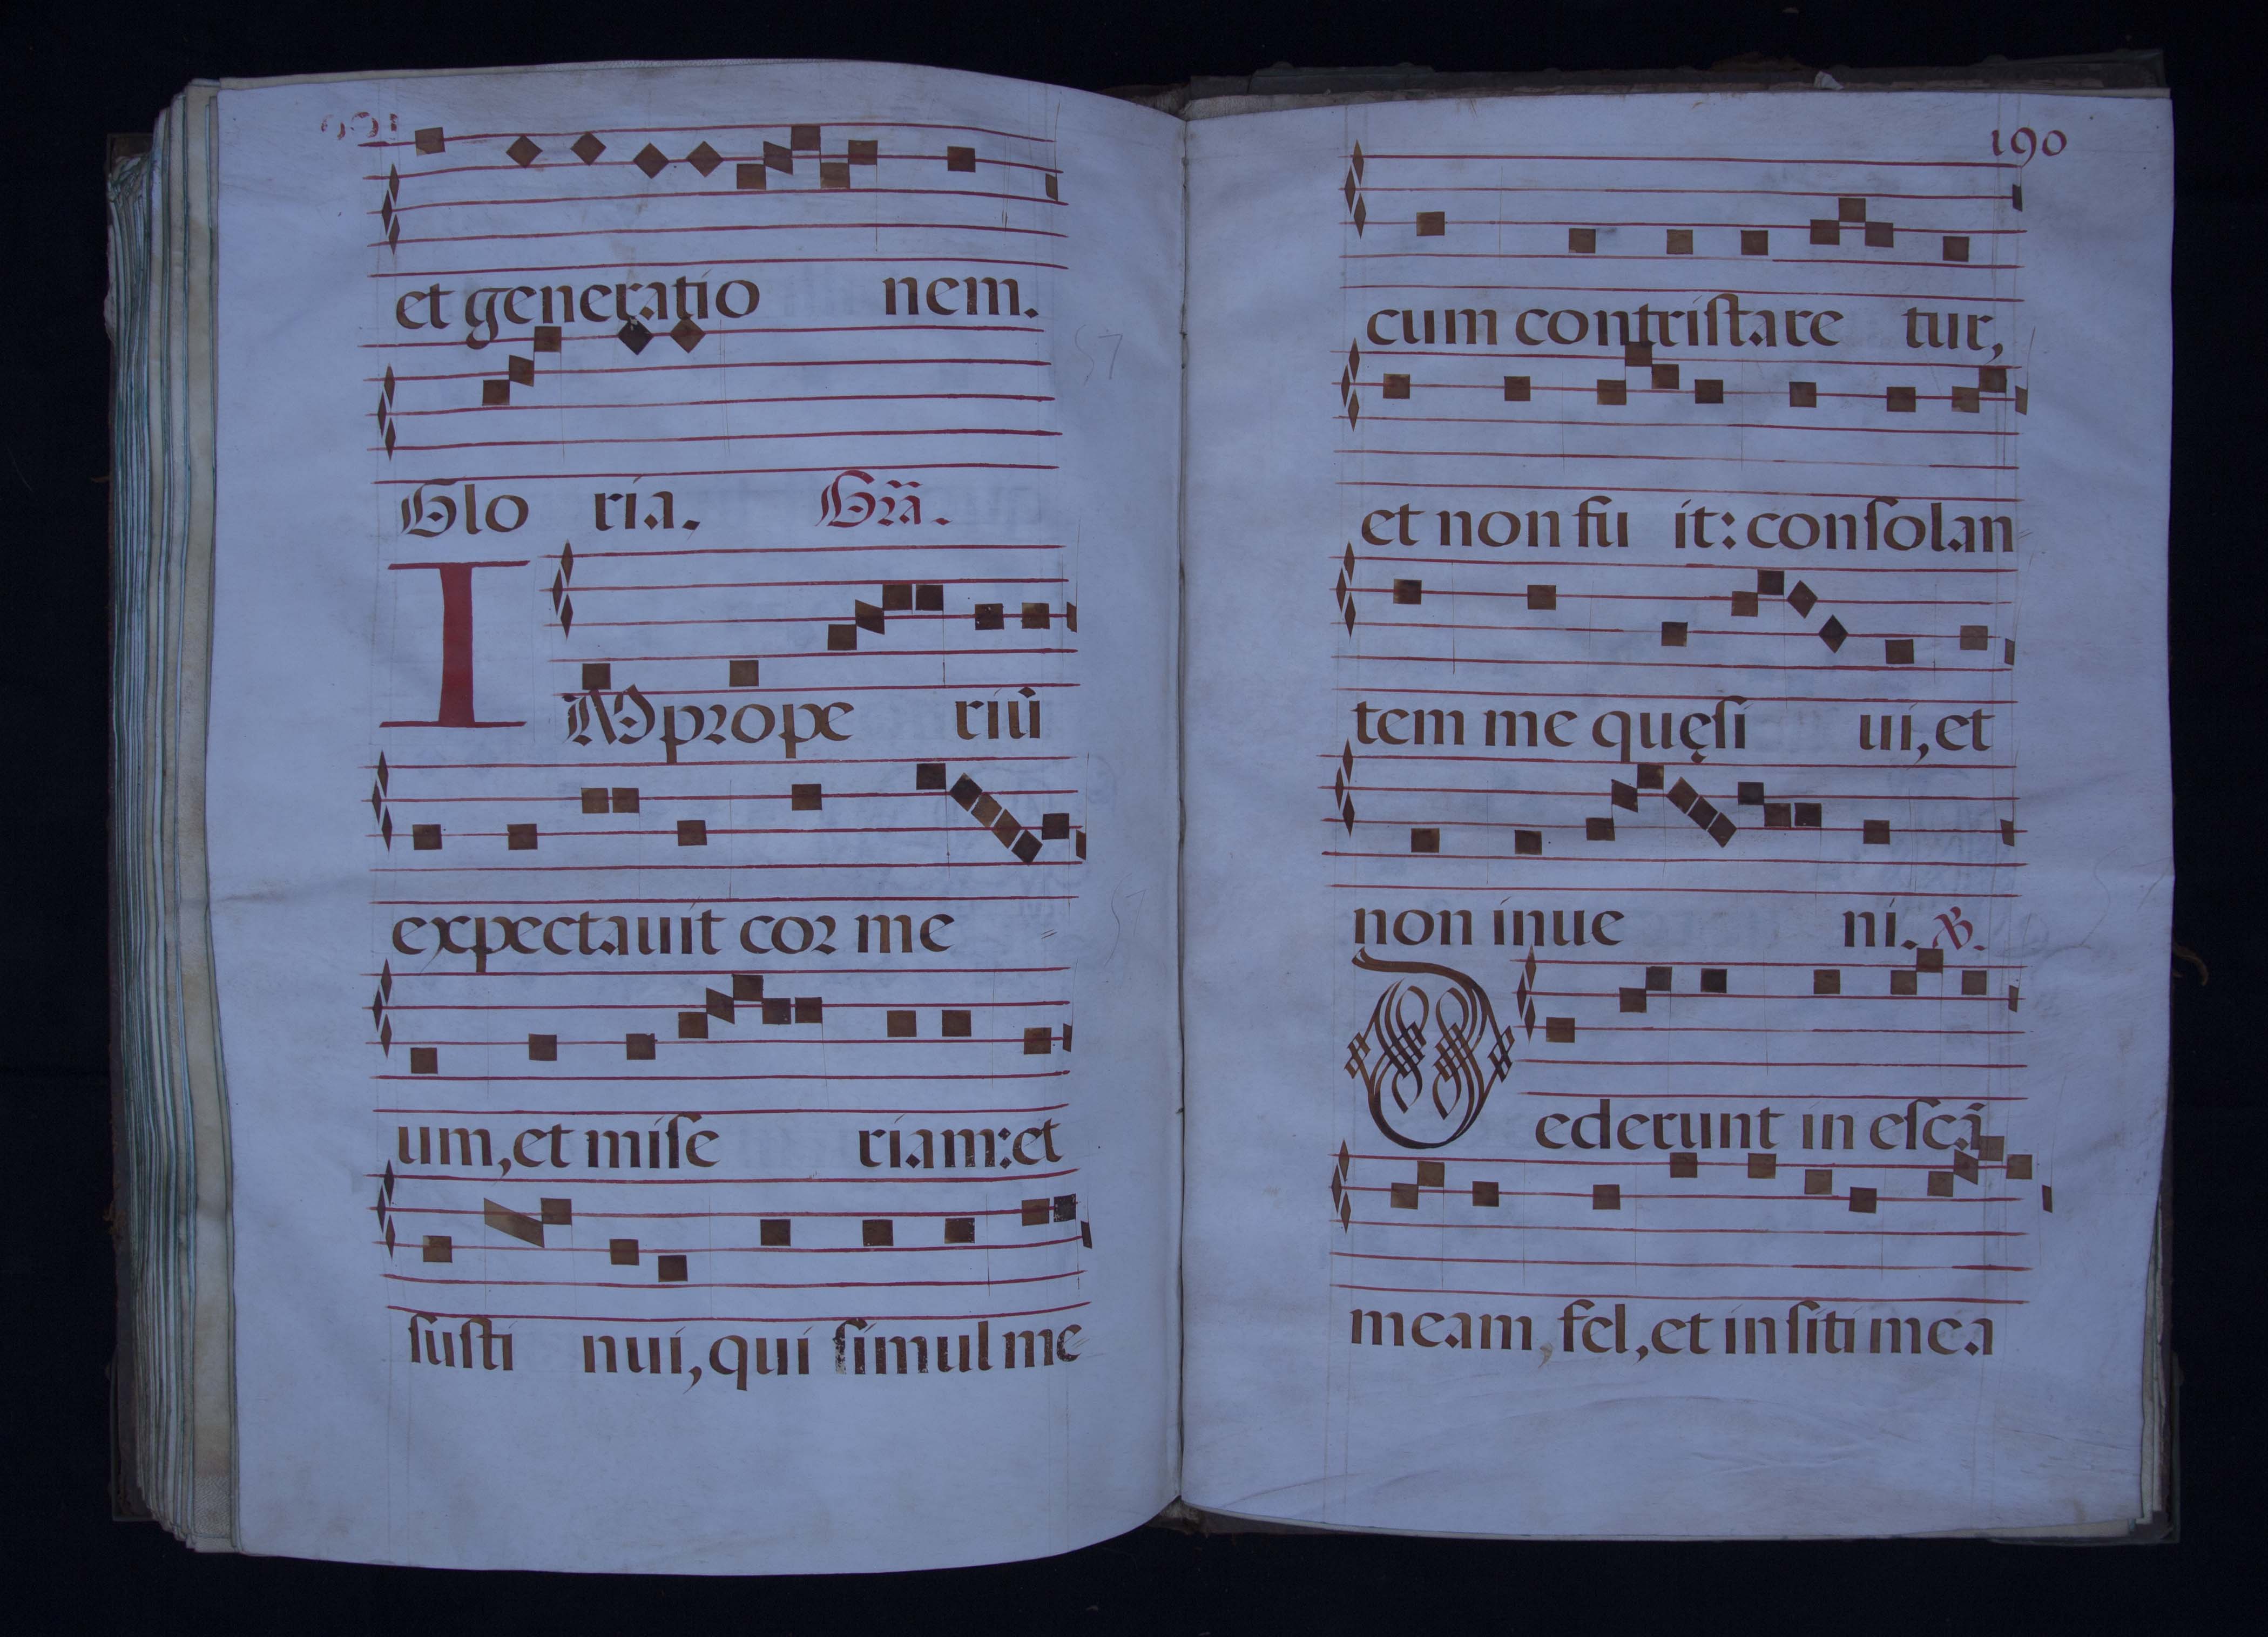 et generatio nem.
Glo ria. Gra̅.
IMprope riu̅
expectauit cor me
um, et miſe riam: et
ſuſti nui, qui ſimul me
190
cum contriſtare tur,
et non fu it: conſolan
tem me quęſi ui, et
non inue ni. ℣.
Dederunt in eſca̅
meam, fel, et in ſiti mea